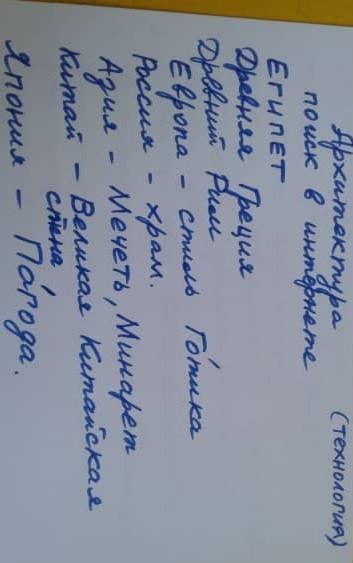 Архитектура (технология)
поиск в интернете
ЕГИПЕТ
Древняя Греция
Древний Рим
Европа - стиль Го́тика
Россия - храм.
Азия - Мечеть, Минарет
Китай - Великая Китайская
стена
Япония - Па́года.